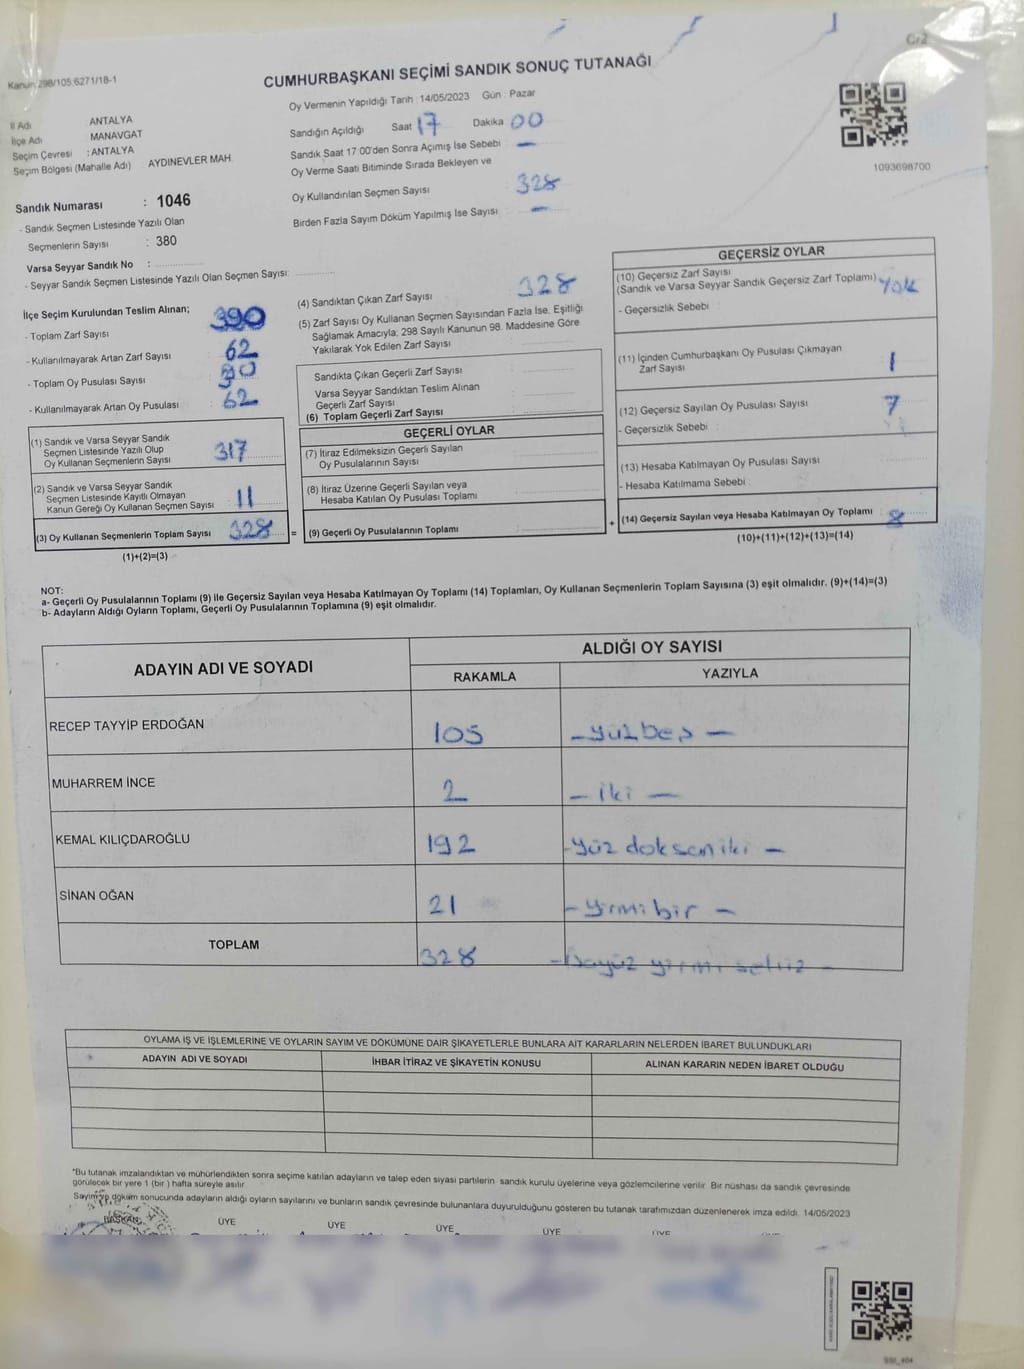 Kanun 298/105.6271/18-1
Gr2
CUMHURBAŞKANI SEÇİMİ SANDIK SONUÇ TUTANAĞI
Oy Vermenin Yapıldığı Tarih : 14/05/2023 Gün : Pazar
İl Adı ANTALYA
İlçe Adı MANAVGAT
Seçim Çevresi : ANTALYA
Seçim Bölgesi (Mahalle Adı) : AYDINEVLER MAH.
Sandığın Açıldığı Saat 17 Dakika 00
Sandık Saat 17 00'den Sonra Açımış İse Sebebi : —
Oy Verme Saati Bitiminde Sırada Bekleyen ve
Oy Kullandırılan Seçmen Sayısı 328
Birden Fazla Sayım Döküm Yapılmış İse Sayısı —
1093698700
Sandık Numarası : 1046
- Sandık Seçmen Listesinde Yazılı Olan
Seçmenlerin Sayısı : 380
Varsa Seyyar Sandık No :
- Seyyar Sandık Seçmen Listesinde Yazılı Olan Seçmen Sayısı:
İlçe Seçim Kurulundan Teslim Alınan;
- Toplam Zarf Sayısı 390
- Kullanılmayarak Artan Zarf Sayısı 62
- Toplam Oy Pusulası Sayısı
- Kullanılmayarak Artan Oy Pusulası : 62
(1) Sandık ve Varsa Seyyar Sandık
Seçmen Listesinde Yazılı Olup
Oy Kullanan Seçmenlerin Sayısı 317
(2) Sandık ve Varsa Seyyar Sandık
Seçmen Listesinde Kayıtlı Olmayan
Kanun Gereği Oy Kullanan Seçmen Sayısı 11
(3) Oy Kullanan Seçmenlerin Toplam Sayısı 328 =
(1)+(2)=(3)
(4) Sandıktan Çıkan Zarf Sayısı 328
(5) Zarf Sayısı Oy Kullanan Seçmen Sayısından Fazla İse, Eşitliği
Sağlamak Amacıyla; 298 Sayılı Kanunun 98. Maddesine Göre
Yakılarak Yok Edilen Zarf Sayısı
Sandıkta Çıkan Geçerli Zarf Sayısı
Varsa Seyyar Sandıktan Teslim Alınan
Geçerli Zarf Sayısı
(6) Toplam Geçerli Zarf Sayısı
GEÇERLİ OYLAR
(7) İtiraz Edilmeksizin Geçerli Sayılan
Oy Pusulalarının Sayısı
(8) İtiraz Üzerine Geçerli Sayılan veya
Hesaba Katılan Oy Pusulası Toplamı
(9) Geçerli Oy Pusulalarının Toplamı +
GEÇERSİZ OYLAR
(10) Geçersiz Zarf Sayısı
(Sandık ve Varsa Seyyar Sandık Geçersiz Zarf Toplamı) Yok
- Geçersizlik Sebebi :
(11) İçinden Cumhurbaşkanı Oy Pusulası Çıkmayan
Zarf Sayısı 1
(12) Geçersiz Sayılan Oy Pusulası Sayısı 7
- Geçersizlik Sebebi :
(13) Hesaba Katılmayan Oy Pusulası Sayısı
- Hesaba Katılmama Sebebi :
(14) Geçersiz Sayılan veya Hesaba Katılmayan Oy Toplamı 8
(10)+(11)+(12)+(13)=(14)
NOT:
a- Geçerli Oy Pusulalarının Toplamı (9) ile Geçersiz Sayılan veya Hesaba Katılmayan Oy Toplamı (14) Toplamları, Oy Kullanan Seçmenlerin Toplam Sayısına (3) eşit olmalıdır. (9)+(14)=(3)
b- Adayların Aldığı Oyların Toplamı, Geçerli Oy Pusulalarının Toplamına (9) eşit olmalıdır.
ADAYIN ADI VE SOYADI ALDIĞI OY SAYISI
RAKAMLA YAZIYLA
RECEP TAYYİP ERDOĞAN 105 – yüzbeş –
MUHARREM İNCE 2 – iki –
KEMAL KILIÇDAROĞLU 192 – yüz doksan iki –
SİNAN OĞAN 21 – yirmi bir –
TOPLAM 328
OYLAMA İŞ VE İŞLEMLERİNE VE OYLARIN SAYIM VE DÖKÜMÜNE DAİR ŞİKAYETLERLE BUNLARA AİT KARARLARIN NELERDEN İBARET BULUNDUKLARI
ADAYIN ADI VE SOYADI İHBAR İTİRAZ VE ŞİKAYETİN KONUSU ALINAN KARARIN NEDEN İBARET OLDUĞU
"Bu tutanak imzalandıktan ve mühürlendikten sonra seçime katılan adayların ve talep eden siyasi partilerin sandık kurulu üyelerine veya gözlemcilerine verilir. Bir nüshası da sandık çevresinde
görülecek bir yere 1 (bir) hafta süreyle asılır.
Sayım ve döküm sonucunda adayların aldığı oyların sayılarını ve bunların sandık çevresinde bulunanlara duyurulduğunu gösteren bu tutanak tarafımızdan düzenlenerek imza edildi. 14/05/2023
BAŞKAN ÜYE ÜYE ÜYE ÜYE ÜYE